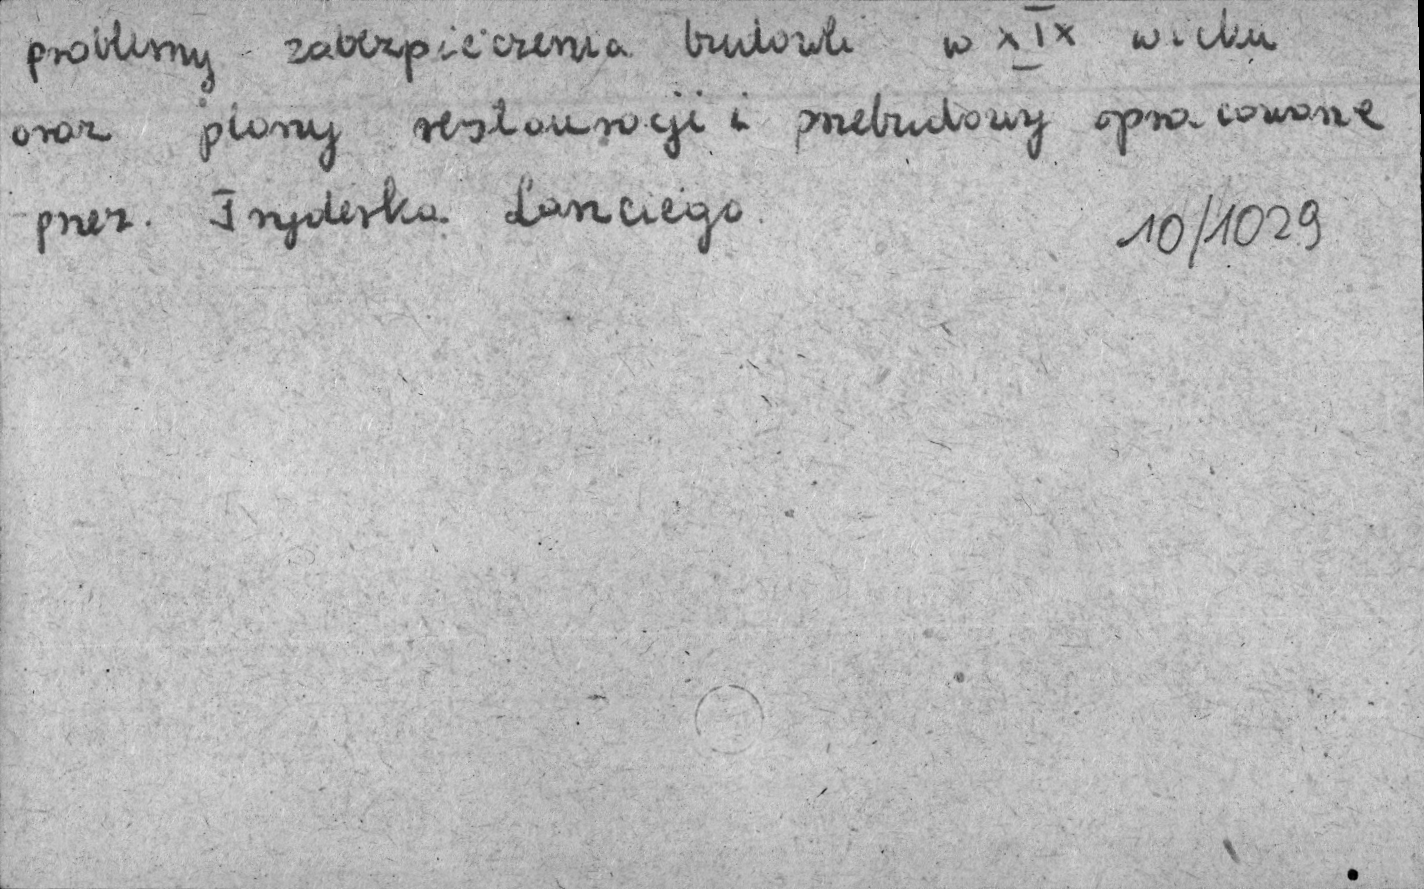 problemy zabezpieczenia budowli w XIX wieku
oraz plany restauracji i przebudowy opracowane
przez. Fryderyka Lanciego.
10/1029